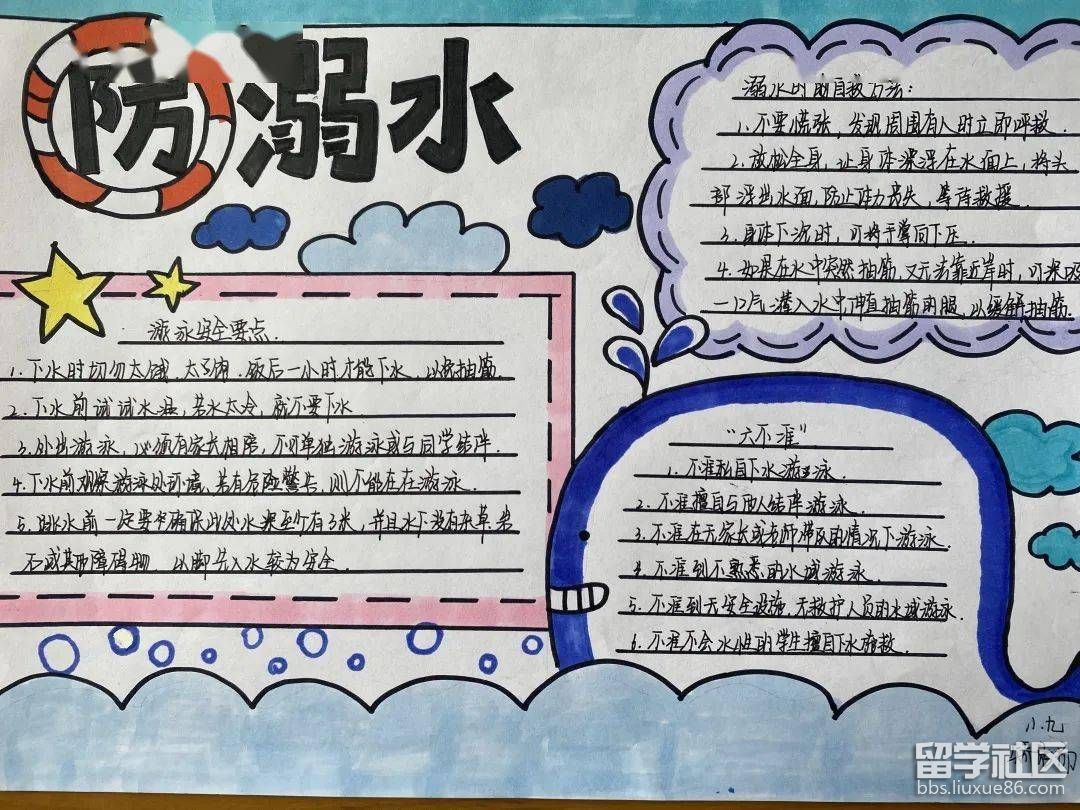 防溺水
游泳安全要点.
1.下水时切勿太饿、太饱.饭后一小时才能下水,以免抽筋.
2.下水前试试水温,若水太冷,就不要下水
3.外出游泳,必须有家长相陪,不可单独游泳或与同学结伴.
4.下水前观察游泳处环境,若有危险警告,则不能在在游泳.
5.跳水前一定要确保此处水深至少有3米,并且水下没有杂草岩
石或其他障碍物.以脚先入水较为安全.
溺水时的自救方法:
1.不要慌张,发现周围有人时立即呼救.
2.放松全身,让身体漂浮在水面上,将头
部浮出水面,防止体力丧失,等待救援.
3.身体下沉时,可将手掌向下压.
4.如果在水中突然抽筋,又无法靠近岸时,可深吸
一口气潜入水中伸直抽筋的腿,以缓解抽筋.
"六不准"
1.不准私自下水游泳.
2.不准擅自与他人结伴游泳.
3.不准在无家长或老师带队的情况下游泳.
4.不准到不熟悉的水域游泳.
5.不准到无安全设施、无救护人员的水域游泳.
6.不准不会水性的学生擅自下水施救.
小九
留学社区
bbs.liuxue86.com